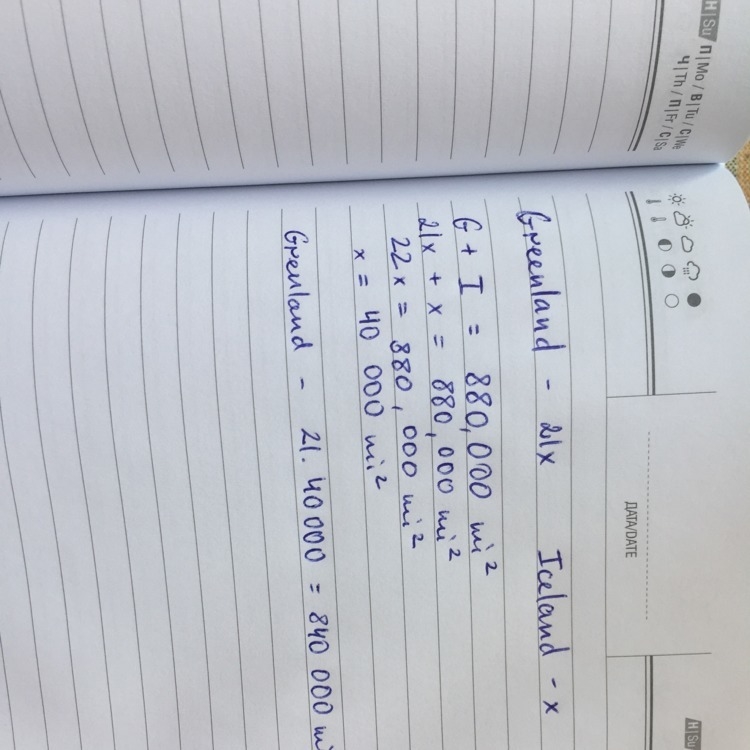 Н|Su П|Mo / В|Tu / С|We
Ч|Th / П|Fr / С|Sa
ДАТА/DATE
Н|Su
Greenland - 21x Iceland - x
G + I = 880,000 mi²
21x + x = 880,000 mi²
22x = 880,000 mi²
x = 40 000 mi²
Grenland - 21. 40000 = 840 000